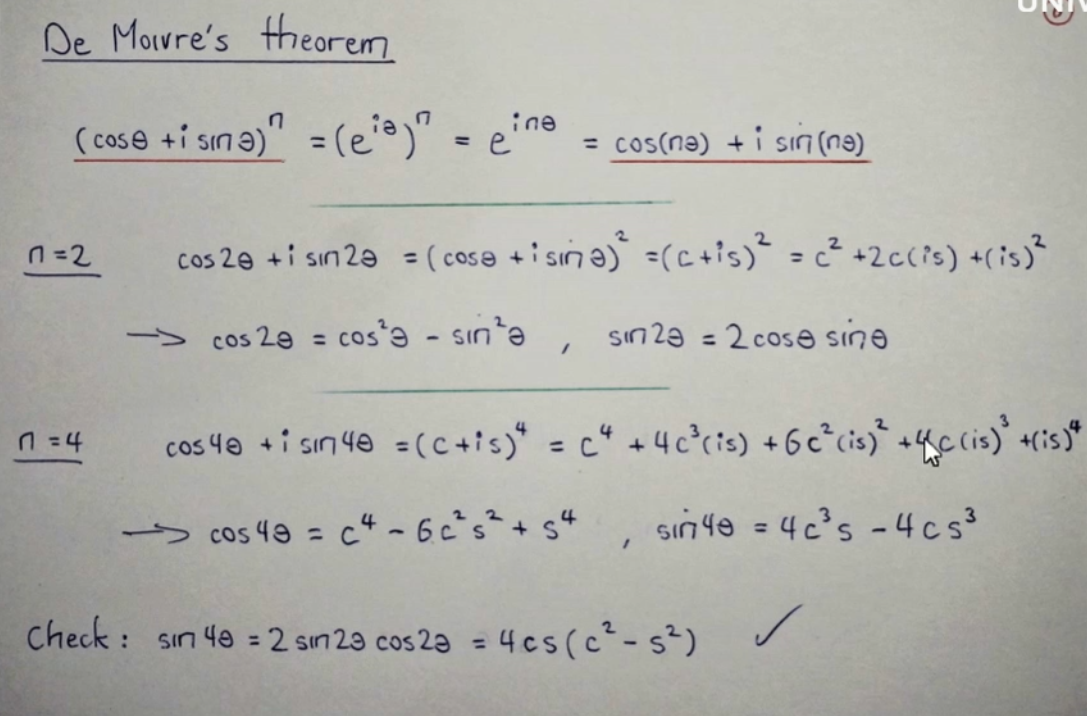 De Moivre's theorem
(cosθ + i sinθ)ⁿ = (e^{iθ})ⁿ = e^{inθ} = cos(nθ) + i sin(nθ)
n=2 cos2θ + i sin2θ = (cosθ + i sinθ)² = (c+is)² = c² + 2c(is) + (is)²
→ cos2θ = cos²θ - sin²θ , sin2θ = 2cosθ sinθ
n=4 cos4θ + i sin4θ = (c+is)⁴ = c⁴ + 4c³(is) + 6c²(is)² + 4c(is)³ + (is)⁴
→ cos4θ = c⁴ - 6c²s² + s⁴ , sin4θ = 4c³s - 4cs³
Check: sin4θ = 2 sin2θ cos2θ = 4cs(c² - s²) ✓